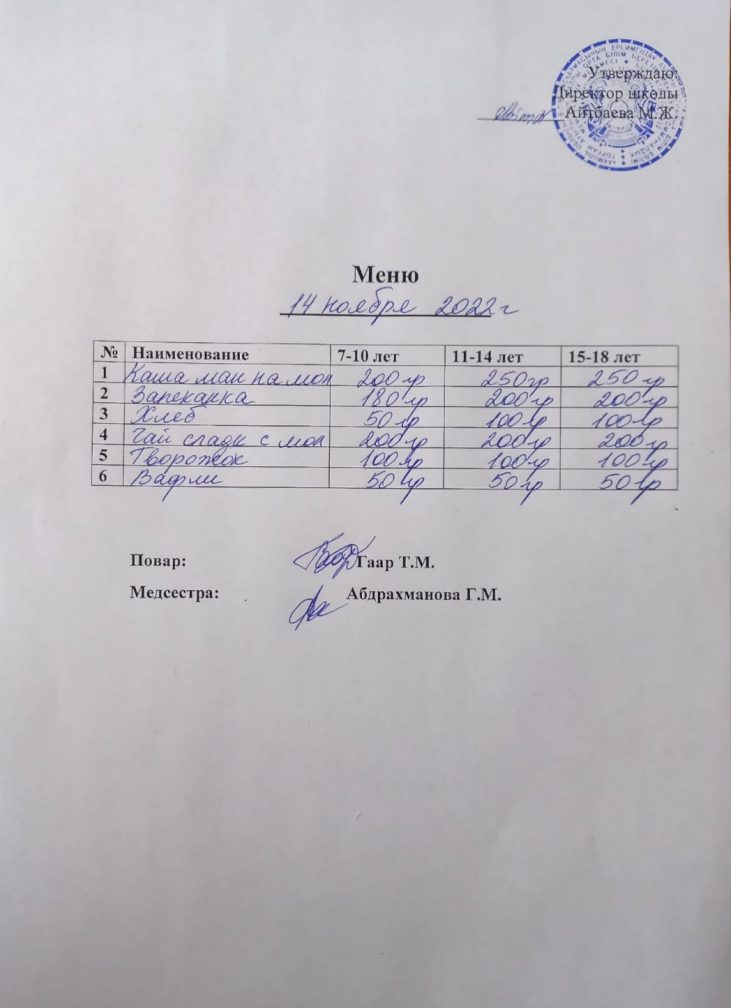 Утверждаю:
Директор школы
Айтбаева М.Ж.
Меню
14 ноября 2022 г
№ Наименование 7-10 лет 11-14 лет 15-18 лет
1 Каша ман на мол 200 гр 250 гр 250 гр
2 Запеканка 180 гр 200 гр 200 гр
3 Хлеб 50 гр 100 гр 100 гр
4 Чай сладк с мол 200 гр 200 гр 200 гр
5 Творожок 100 гр 100 гр 100 гр
6 Вафли 50 гр 50 гр 50 гр
Повар: Гаар Т.М.
Медсестра: Абдрахманова Г.М.